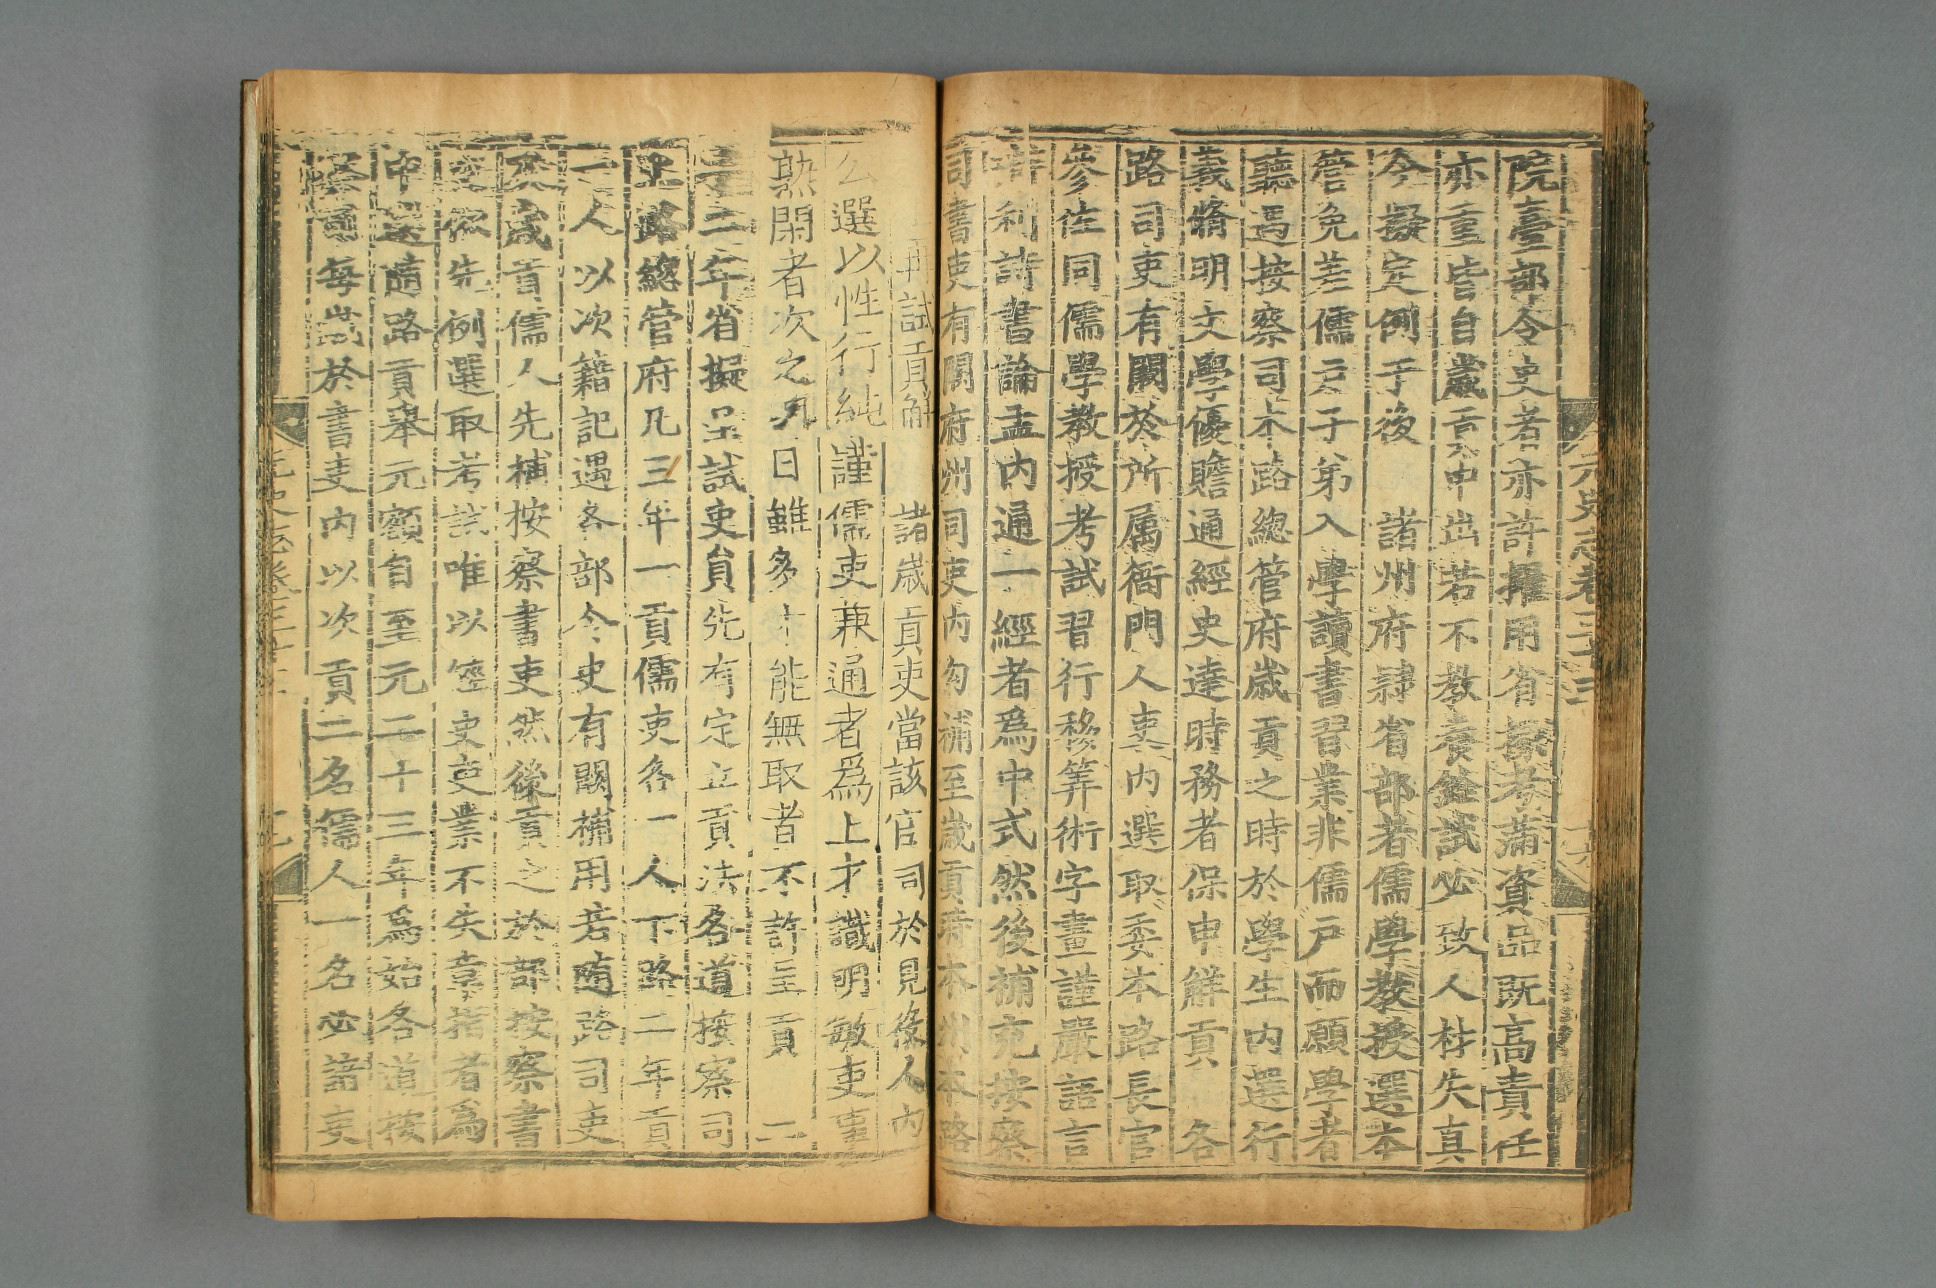 院臺部令史若亦許擢用省掾考滿資品既高責任
亦重皆自歲貢中出若不教養銓試必致人材失真
今擬定例于後　諸州府隷省部者儒學教授選本
管免差儒戶子弟入學讀書習業非儒戶而願學者
聽遇按察司本路總管府歲貢之時於學生內選行
義修明文學優贍通經史達時務者保申解貢　各
路司吏有闕於所屬衙門人吏內選取委本路長官
參佐同儒學教授考試習行移筭術字畫謹嚴語言
辯利詩書論孟內通一經者爲中式然後補充按察
司書吏有闕府州司吏內勾補至歲貢時本州本路
再試貢解　諸歲貢吏當該官司於見役人內
公選以性行純謹儒吏兼通者爲上才識明敏吏事
熟閑者次之月日雖多才能無取者不許呈貢　二
十二年省擬呈試吏員先有定立貢法各道按察司
上路總管府凡三年一貢儒吏各一人下路二年貢
一人以次籍記遇各部令史有闕補用若隨路司吏
及歲貢儒人先補按察書吏然後貢之於部按察書
吏依先例選取考試唯以經史吏業不失章指者爲
中選隨路貢舉元額自至元二十三年爲始各道按
察司每歲於書吏內以次貢二名儒人一名必諳吏
元史志卷三十三